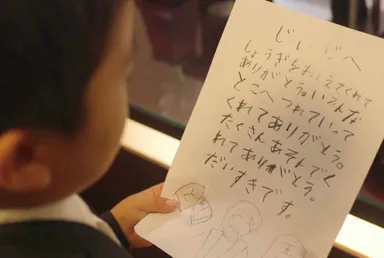 じいじへ
しょうぎをおしえてくれて
ありがとう。いろんな
とこへつれていって
くれてありがとう。
たくさんあそんでく
れてありがとう。
だいすきです。